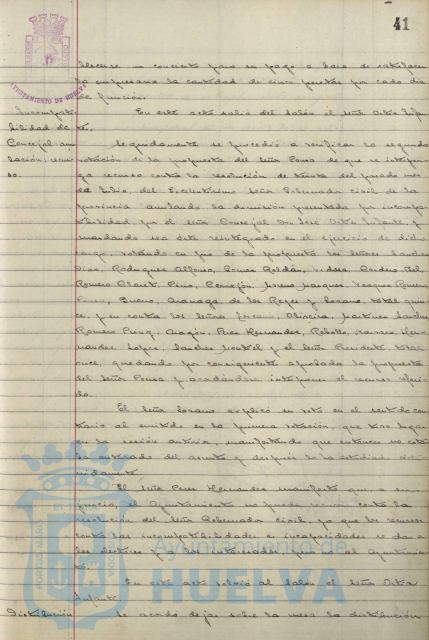 41
AYUNTAMIENTO DE HUELVA
blecerse un concierto para su pago a base de satisfacer
la empresa la cantidad de cinco pesetas por cada día
de función.
En este acto salió del salón el señor Ortiz Infan
te.
Incompati
bilidad de
Concejal
recur
so.
Seguidamente se procedió a verificar la segunda
votación de la propuesta del señor Ponce de que se interpon
ga recurso contra la resolución de treinta del pasado mes
de Julio, del Excelentísimo señor Gobernador civil de la
provincia anulando la dimisión presentada por incompa
tibilidad por el señor Concejal don José Ortiz Infante, y
mandando sea éste reintegrado en el ejercicio de dicho
cargo, votando en pro de la propuesta los señores Sánchez
Díaz, Rodríguez Alfonso, Gómez Roldán, Cordero Bel,
Romero Pino, Cerrejón, Moreno Márquez, Vázquez Romero
Ponce, Bueno, de los Reyes y Lozano, total quin
ce, y en contra los señores Oliveira, Martínez Sánchez
Romero Puig, Aragón, Pérez Hernández, Rebollo, Navarro, Her
nández López, Sánchez y el señor Presidente, total
once, quedando por consiguiente aprobada la propuesta
del señor Ponce y acordándose interponer el recurso referi
do.
El señor Lozano explicó su voto en el sentido con
trario al emitido en la primera votación, que tuvo lugar
en la sesión anterior, manifestando que entonces no esta
ba enterado del asunto y después lo ha estudiado
El señor Pérez Hernández manifestó que a su
juicio, el Ayuntamiento no puede recurrir contra la
resolución del señor Gobernador Civil, ya que los recursos
contra las incompatibilidades e incapacidades se da a
los electores y a los interesados pero no al Ayuntamien
to.
En este acto volvió al salón el señor Ortiz
Infante.
Distribución
Se acordó dejar sobre la mesa la distribución
Ayuntamiento de
HUELVA